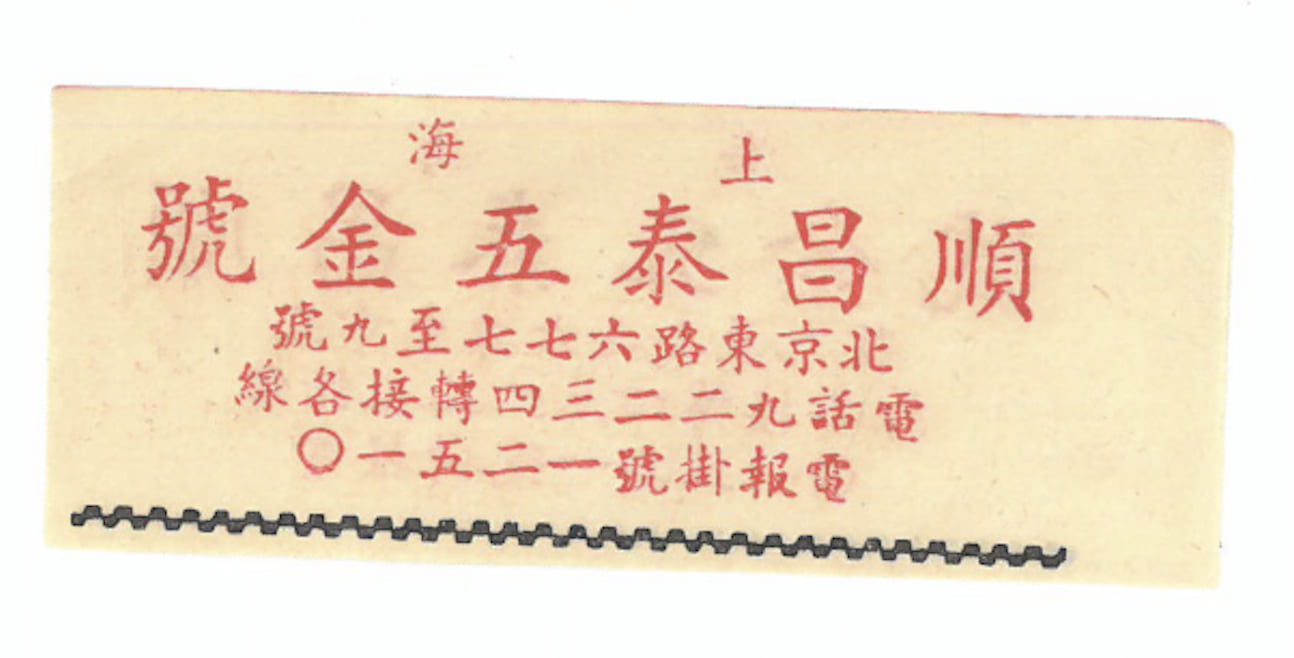 上海
順昌泰五金號
北京東路六七七至九號
電話九二二三四轉接各線
電報掛號一二五一〇